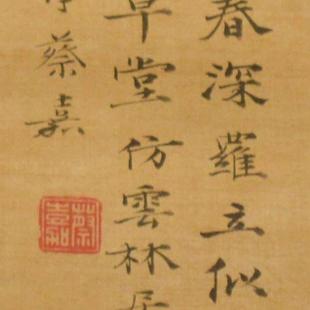 春深羅立似
草堂仿雲林
蔡嘉
蔡嘉